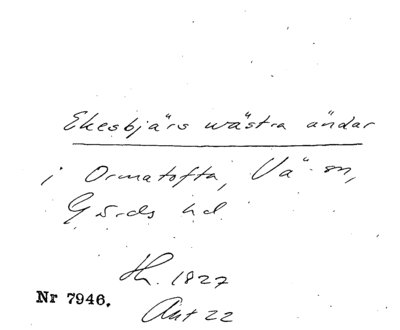 Ekesbjärs wästra ändar
i Ormatofta, Vä sn,
Gärds hd
Hh. 1827
Nr 7946.
Akt 22